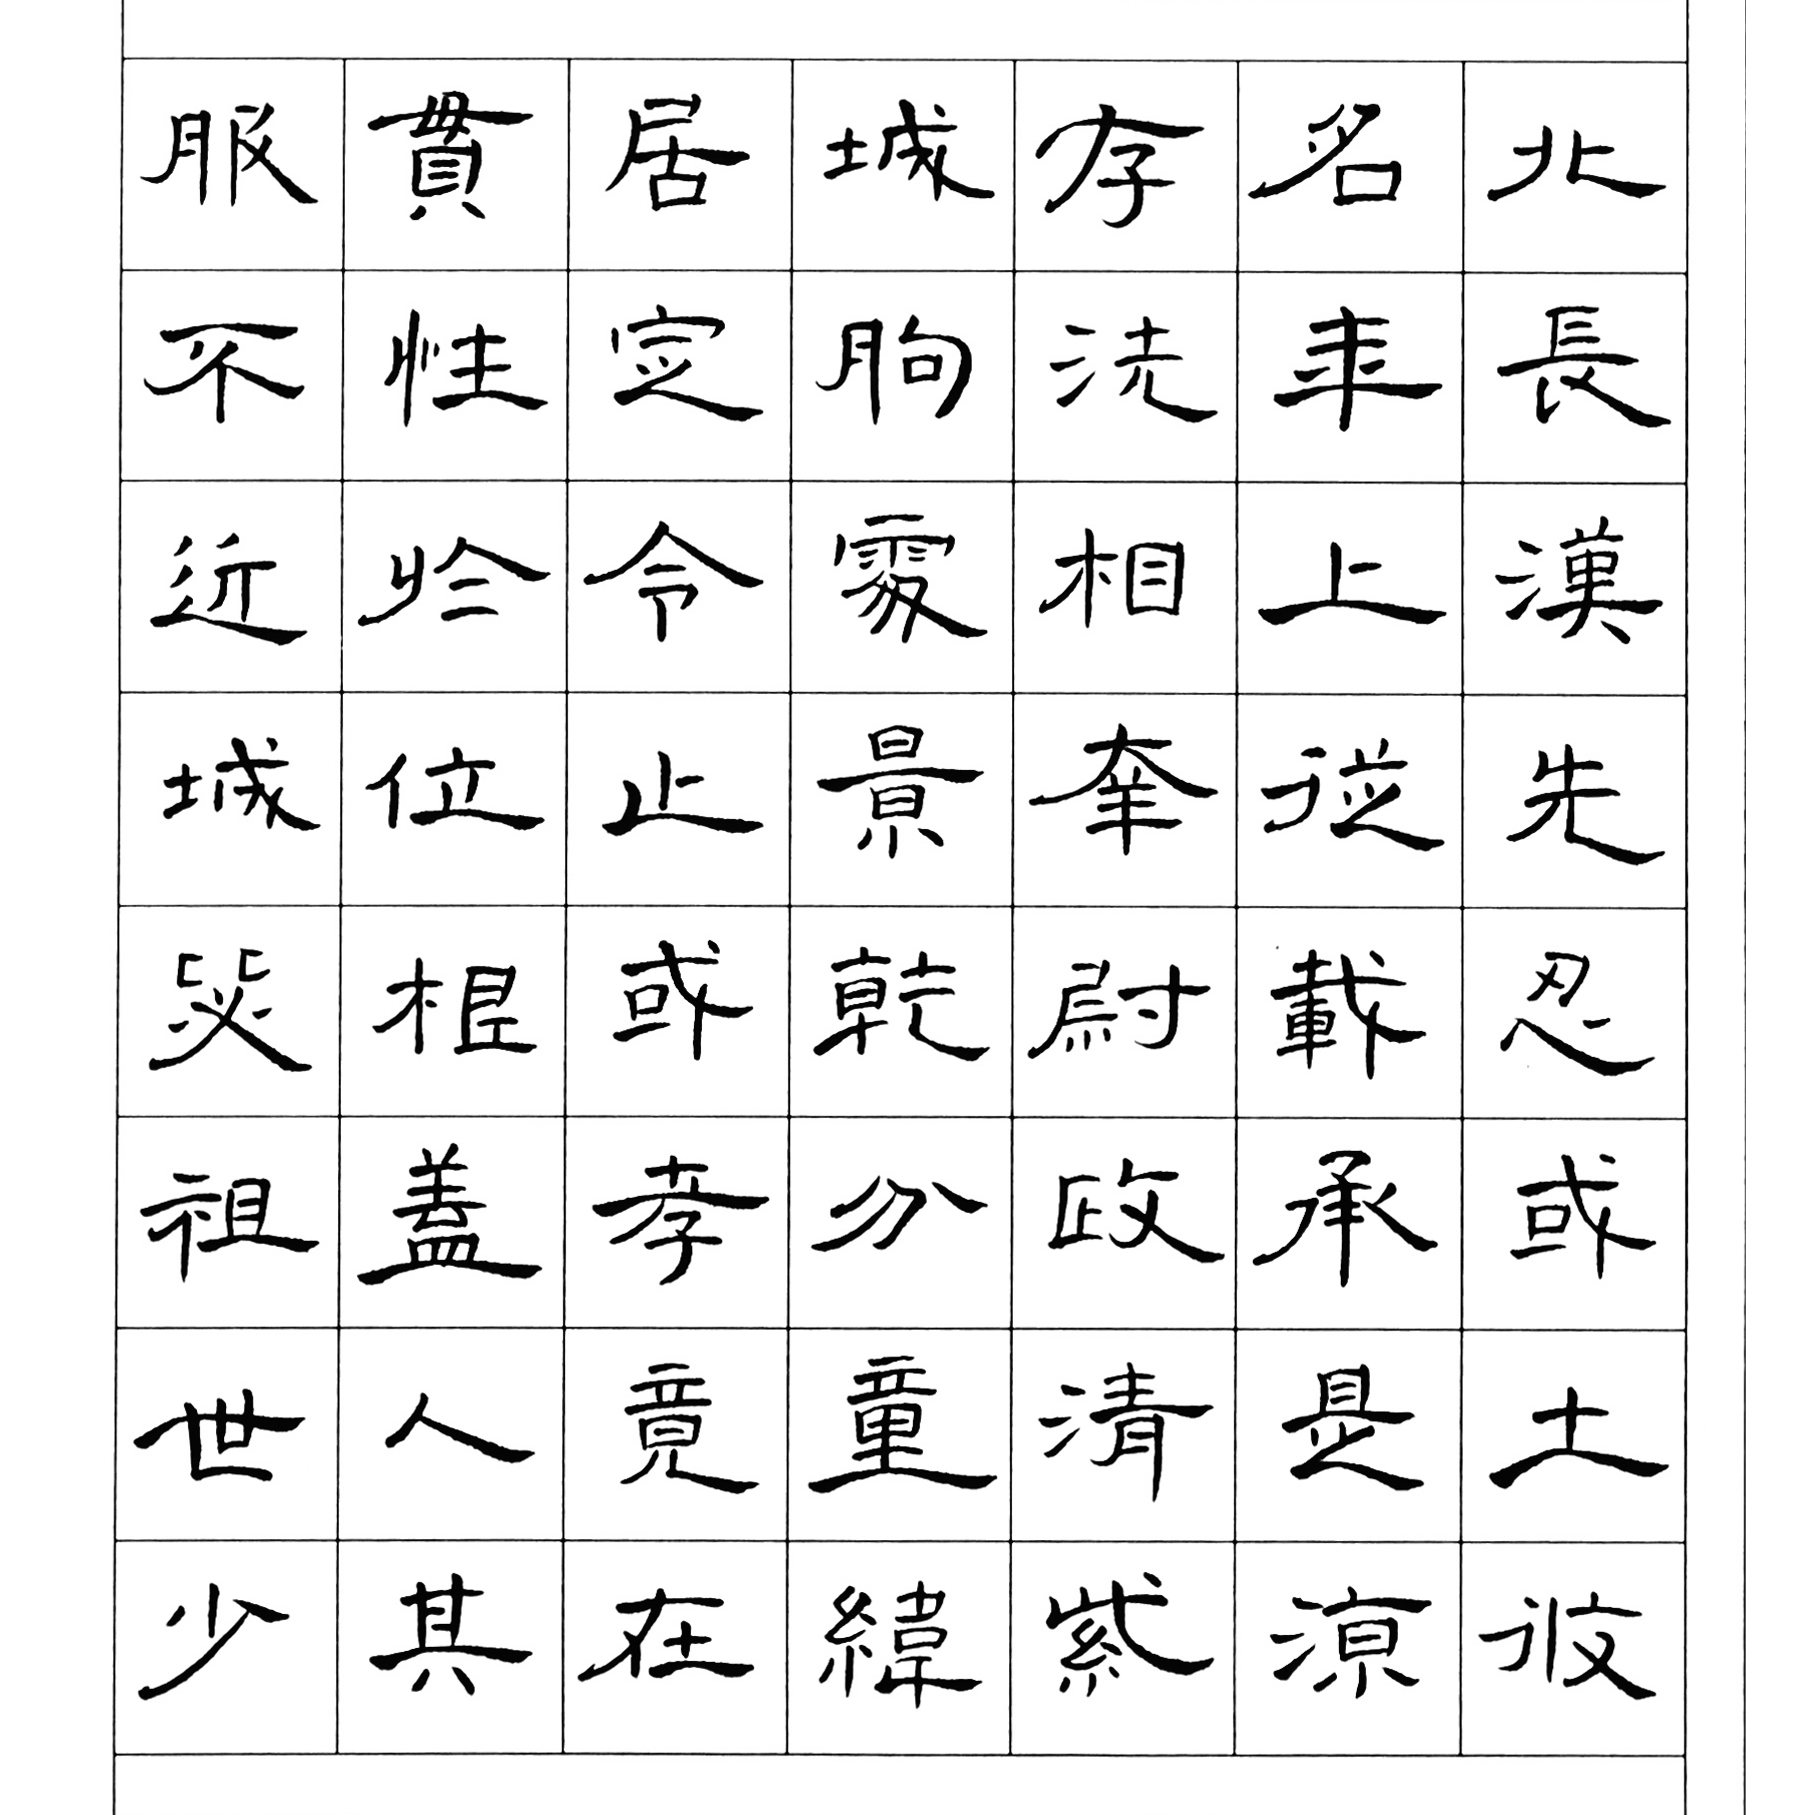 北長漢先忍或土彼
名年上從載承是涼
存相尉政清紫
城朐處景乾分童緯
居定令止或孝竟在
貫性於位根蓋人其
服不近城祖世少